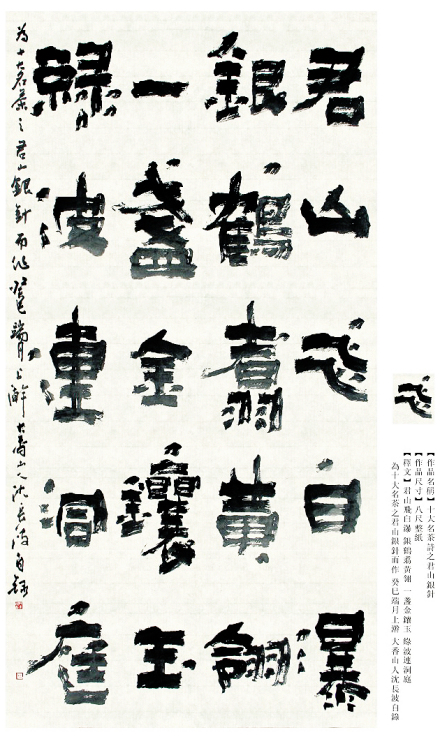 君山飛白瀑
銀鶴翥黃翎
一盞金鑲玉
綠波連洞庭
為十大名茶之君山銀針而作癸巳端月上澣大香山人沈長波自錄
【作品名稱】十大名茶詩之君山銀針
【作品尺寸】八尺整紙
【釋文】君山飛白瀑 銀鶴翥黃翎 一盞金鑲玉 綠波連洞庭
為十大名茶之君山銀針而作 癸巳端月上澣 大香山人沈長波自錄